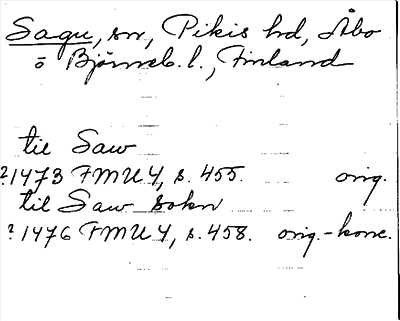 Sagu, sn, Pikis hd, Åbo
o Björneb. l., Finland
til Saw
?1473 FMU 4, s. 455. orig.
til Saw sokn
?1476 FMU 4, s. 458. orig.-konc.